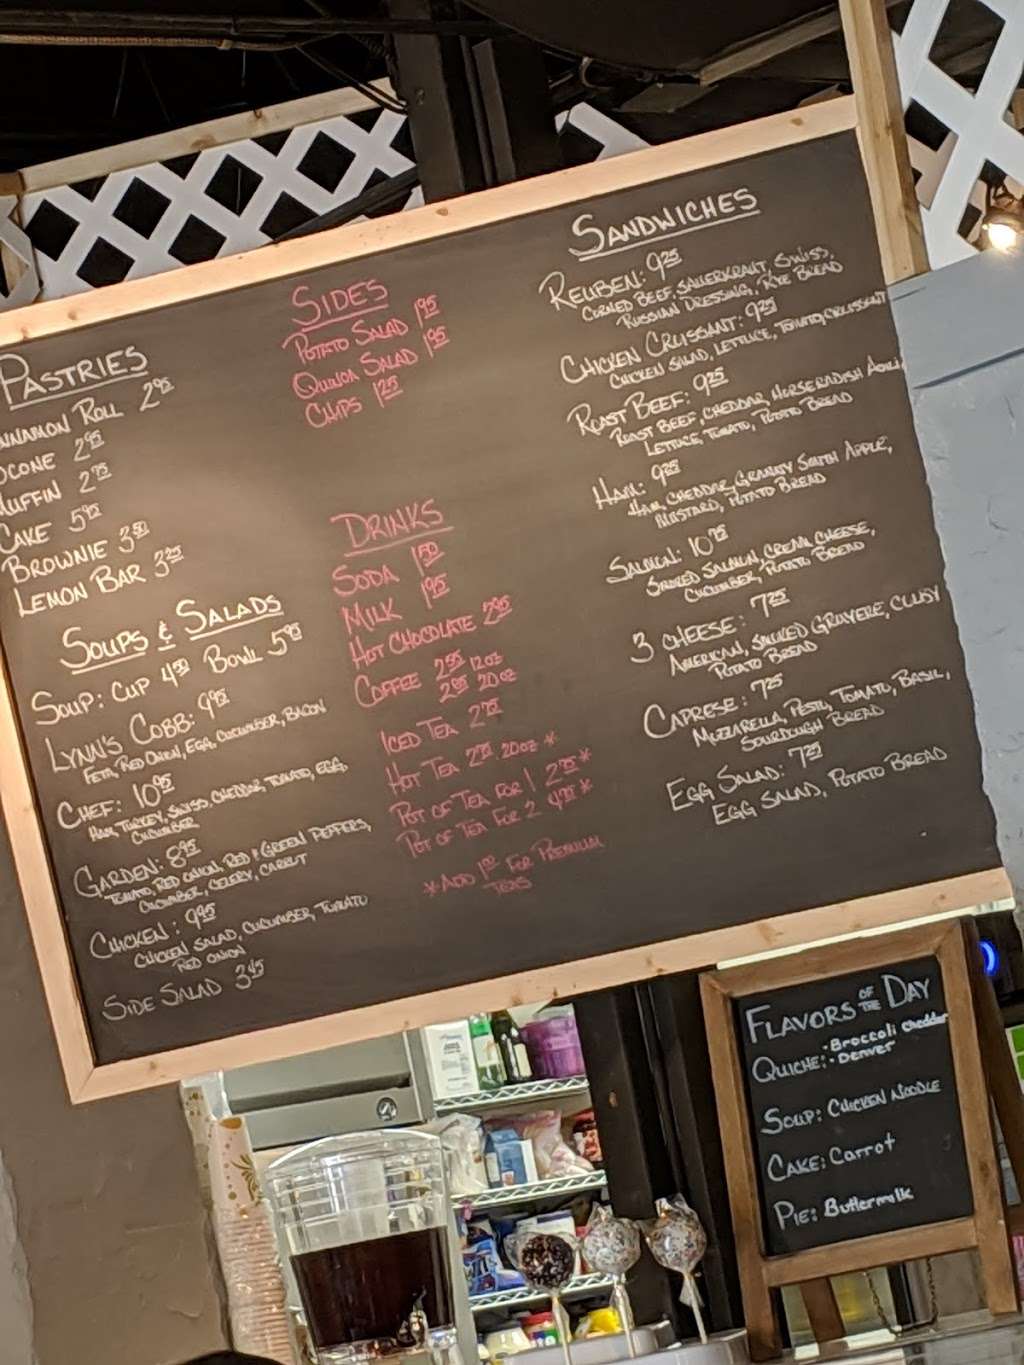 PASTRIES
CINNAMON ROLL 2.95
SCONE 2.95
MUFFIN 2.75
CAKE 5.95
BROWNIE 3.50
LEMON BAR 3.25
SOUPS & SALADS
SOUP: CUP 4.50 BOWL 5.95
LYNN'S COBB: 9.95
FETA, RED ONION, EGG, CUCUMBER, BACON
CHEF: 10.95
HAM, TURKEY, SWISS, CHEDDAR, TOMATO, EGG,
CUCUMBER
GARDEN: 8.95
TOMATO, RED ONION, RED & GREEN PEPPERS,
CUCUMBER, CELERY, CARROT
CHICKEN: 9.95
CHICKEN SALAD, CUCUMBER, TOMATO
RED ONION
SIDE SALAD 3.45
SIDES
POTATO SALAD 1.95
QUINOA SALAD 1.95
CHIPS 1.25
DRINKS
SODA 1.50
MILK 1.95
HOT CHOCOLATE 2.95
COFFEE 2.55 12OZ
20OZ
ICED TEA 2.75
HOT TEA 20OZ *
POT OF TEA FOR 1 *
POT OF TEA FOR 2 *
*ADD 1.00 FOR PREMIUM
TEAS
SANDWICHES
REUBEN: 9.25
CORNED BEEF, SAUERKRAUT, SWISS,
RUSSIAN DRESSING, RYE BREAD
CHICKEN CROISSANT: 9.25
CHICKEN SALAD, LETTUCE, TOMATO, CROISSANT
ROAST BEEF: 9.25
ROAST BEEF, CHEDDAR, HORSERADISH AIOLI,
LETTUCE, TOMATO, POTATO BREAD
HAM: 9.25
HAM, CHEDDAR, GRANNY SMITH APPLE,
MUSTARD, POTATO BREAD
SALMON: 10.95
SMOKED SALMON, CREAM CHEESE,
CUCUMBER, POTATO BREAD
3 CHEESE: 7.25
AMERICAN, SMOKED GRUYERE, COLBY
POTATO BREAD
CAPRESE: 7.25
MOZZARELLA, PESTO, TOMATO, BASIL,
SOURDOUGH BREAD
EGG SALAD: 7.25
EGG SALAD, POTATO BREAD
FLAVORS OF THE DAY
QUICHE: • Broccoli cheddar
• Denver
SOUP: CHICKEN NOODLE
CAKE: Carrot
PIE: Buttermilk